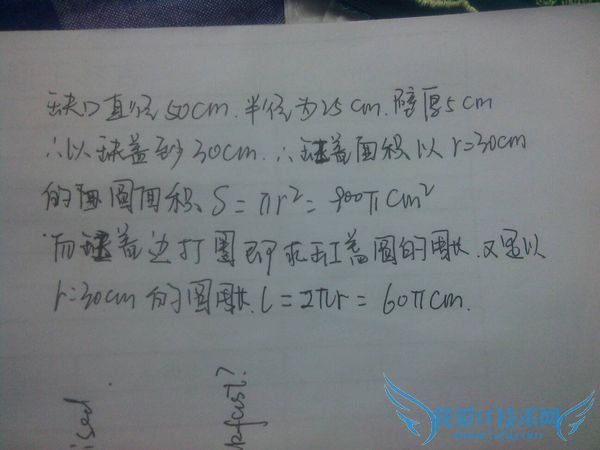 缺口直径50cm.半径为25cm.壁厚5cm
∴以缺盖到30cm.∴缸盖面积以r=30cm
的圆面积.S=πr²=900πcm²
而缸盖边打圈即求缸盖圆的周长.又是以
r=30cm的圆周长.l=2πr=60πcm.
ised
kfast?